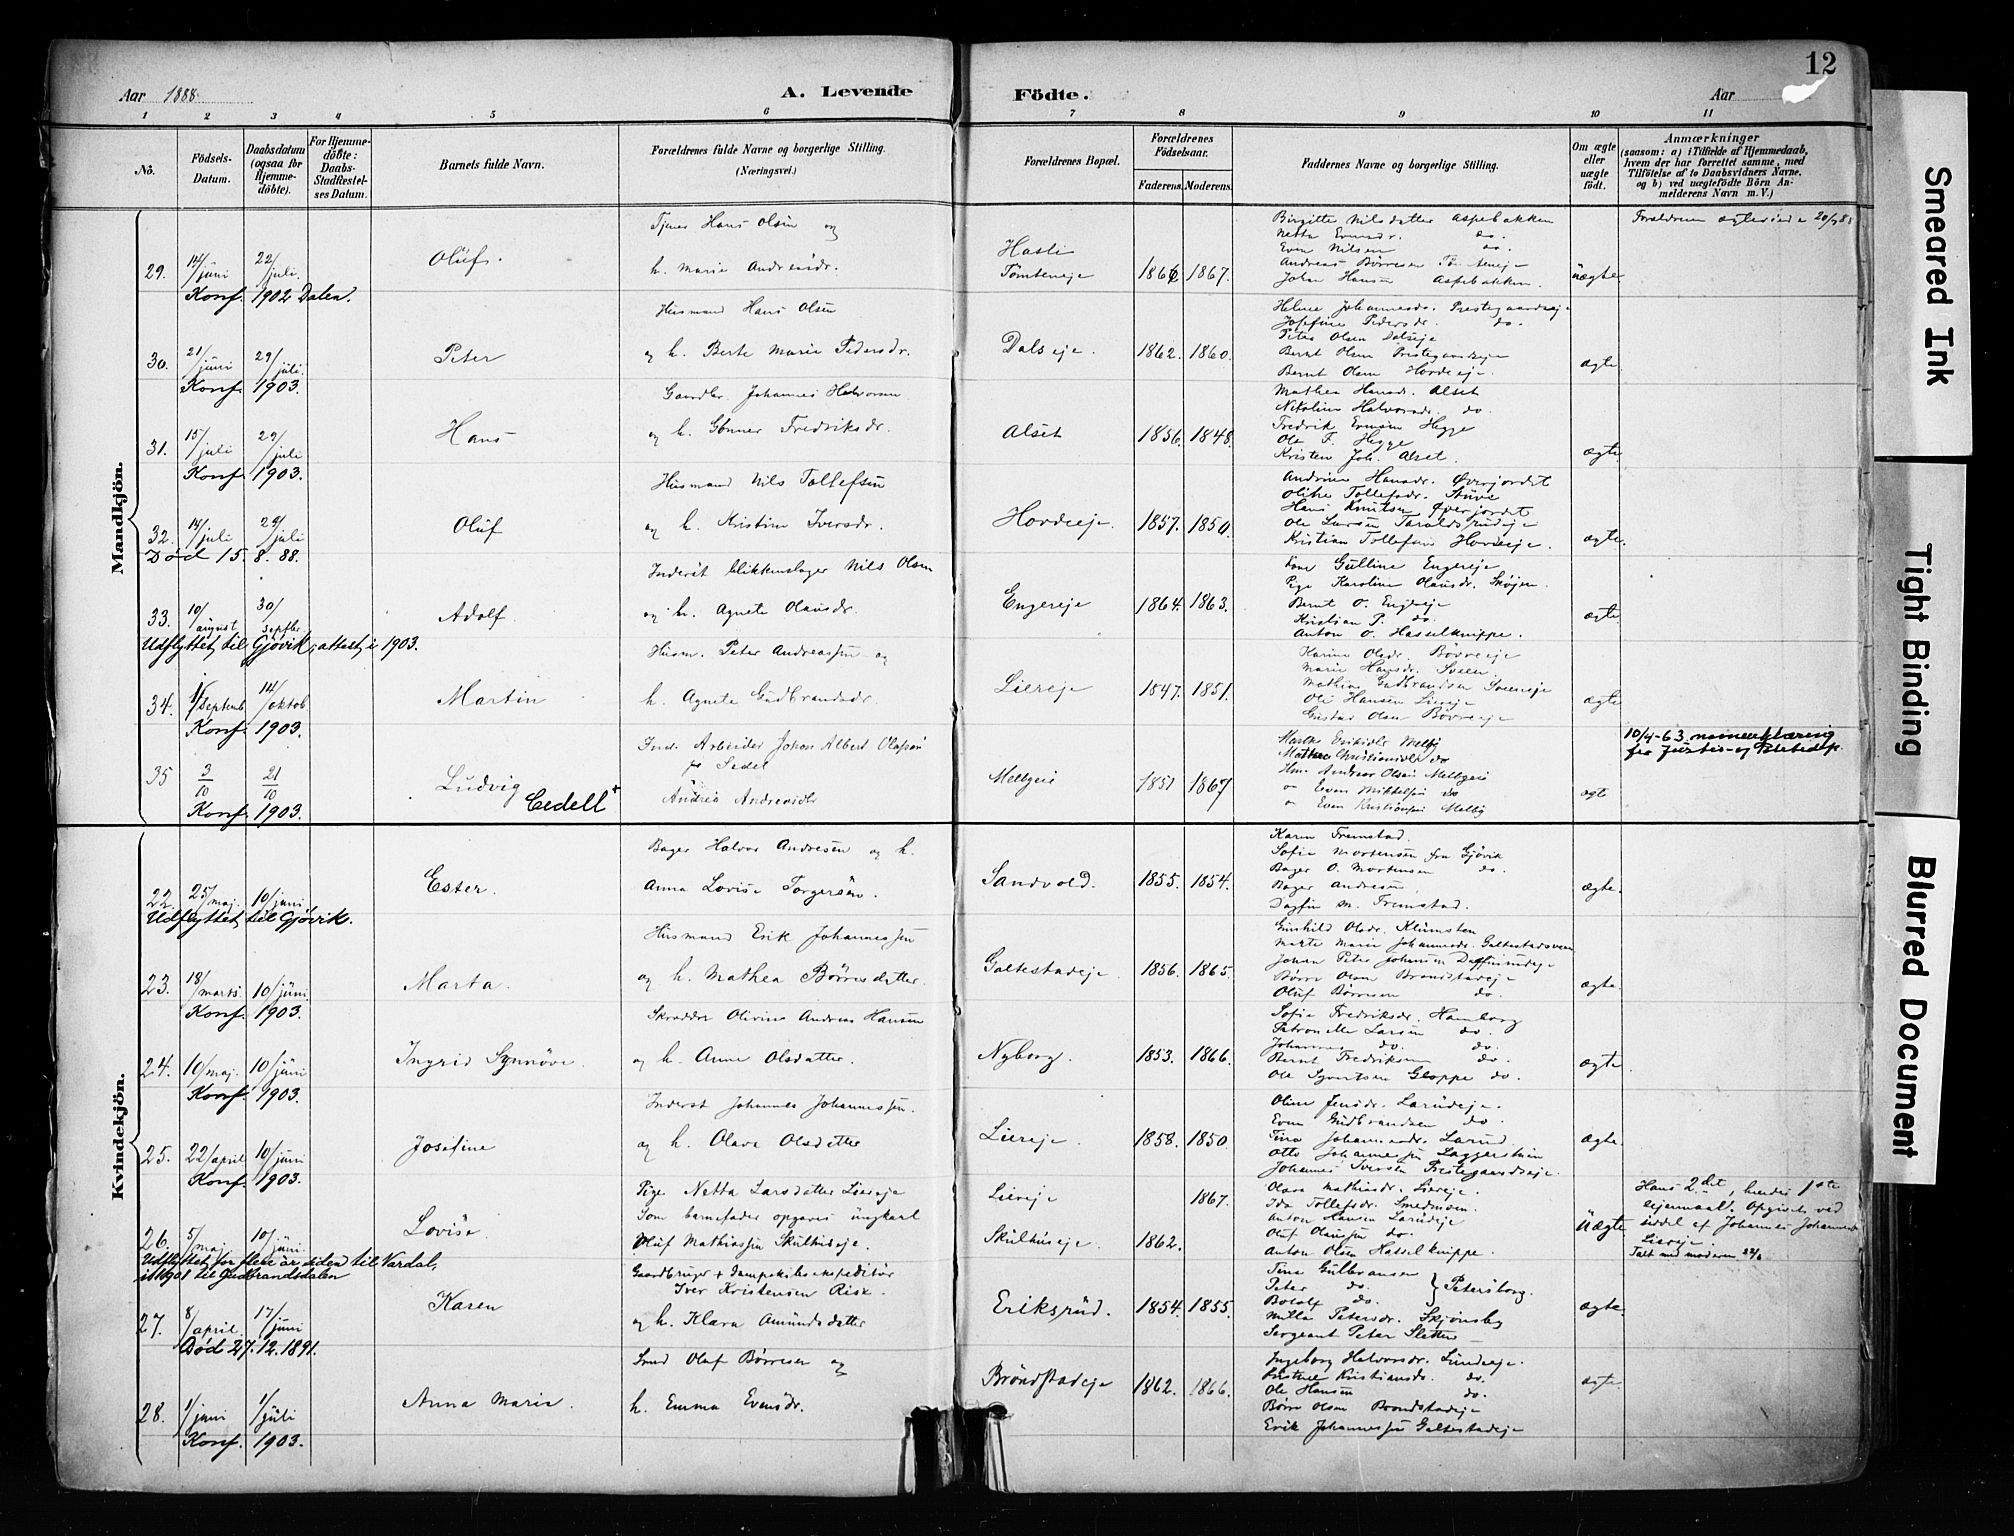 12
Aar 1888
A. Levende
Födte.
Aar
1 2 3 4 5 6 7 8 9 10 11
No.
Födsels-Datum.
Daabsdatum (ogsaa for Hjemme-döbte).
For Hjemme-döbte: Daabs-Stadfæstel-ses Datum.
Barnets fulde Navn.
Forældrenes fulde Navne og borgerlige Stilling.
(Næringsvei.)
Forældrenes Bopæl.
Forældrenes Födselsaar.
Faderens. Moderens.
Faddernes Navne og borgerlige Stilling.
Om ægte eller uægte födt.
Anmærkninger
(saasom: a) i Tilfælde af Hjemmedaab, hvem der har forrettet samme, med Tilföielse af to Daabsvidners Navne, og b) ved uægtefödte Börn An-melderens Navn m. V.)
Mandkjön.
29. 14/juni 22/juli. Oluf. Tjener Hans Olsen og
h. Marie Andreasdr. Hasli Tømteneje 1866 1867. uægte
Birgitte Nilsdatter Aspebakken
Netta Evensdr. do.
Even Nilsen do.
Andreas Børresen Tømteneje
Johan Hansen Aspebakken.
Forældrene ægteviede 20/9 88
Konf. 1902 Dalen.
30. 21/juni 29/juli. Peter Husmand Hans Olsen
og h. Berte Marie Pedersdr. Dalseje. 1862. 1860. ægte
Helene Johannesdr. Prestegaardseje
Josefine Pedersdr. do.
Peter Olsen Dalseje
Bernt Olsen Prestegaardseje
Bernt Olsen Hovdeeje.
Konf. 1903.
31. 15/juli 29/juli Hans Gaardbr. Johannes Halvorsen
og h. Gunner Fredriksdr. Alset 1856. 1848. ægte
Mathea Hansdr. Alset
Nikoline Halvorsdr. do.
Fredrik Evensen Hegge
Ole F. Hegge
Kristen Joh. Alset.
Konf. 1903.
32. 14/juli 29/juli Oluf Husmand Nils Tollefsen
og h. Kristine Iversdr. Hovdeeje. 1857. 1850. ægte.
Andrine Hansdr. Øverjordet
Olitre Tollefsdr. Stuve
Hans Knutsen Øverjordet
Ole Larsen Taraldsrudeje
Kristian Tollefsen Hovdeeje.
Død 15. 8. 88.
33. 10/august 30/septbr. Adolf Inderst blikkenslager Nils Olsen
og h. Agnete Olausdr. Engereje 1864. 1863. ægte
Kone Gulline Engereje
Pige Karoline Olausdr. Smøjen.
Bernt O. Engereje
Kristian P. do.
Anton O. Hasselknippe.
Udflyttet til Gjøvik, attest i 1903.
34. 1/septemb 14/oktob Martin Husm. Peter Andreassen og
h. Agnete Gudbrandsdr. Liereje 1847. 1851. ægte
Karine Olsdr. Bøvreeje
Marie Hansdr. Sveen
Mathias Gudbrandsen Sveeneje
Ole Hansen Liereje
Gustav Olsen Bøvreeje
Konf. 1903.
35 3/10 21/10 Ludvig Cedell + Ind. Arbeider Johan Albert Olafsen
fr Sedel
Andrea Andreasdtr Melbyeie 1851 1867 ægt
Marthe Eriksdtr Melby
Mathea Christiansdtr do
Hm. Andreas Olsen Melbyeie
" Even Mikkelsen do
" Even Kristiansen Melby
10/4-63. navneerklæring fra Justis- og Politidep.
Konf. 1903.
Kvindekjön.
22. 25/maj. 10/juni Ester. Bager Halvor Andresen og h.
Anna Lovise Torgersen Sandvold. 1855. 1854. ægte.
Karen Fremstad
Sofie Mortensen fra Gjøvik
Bager O. Mortensen do.
Bager Andresen
Dagfin M. Fremstad.
Udflyttet til Gjøvik.
23. 18/marts. 10/juni. Marta. Husmand Erik Johannessen
og h. Mathea Børresdatter. Galtestadeje. 1856. 1865. ægte.
Gunhild Olsdr. Klumsten
Marte Marie Johannesdr. Galtestadsveen
Johan Peter Johansen Dalfinrudeje
Børre Olsen Brandstadeje
Oluf Børresen do.
Konf. 1903.
24. 10/maj. 10/juni Ingrid Synnöve. Skrædder Olivius Andreas Hansen
og h. Anne Olsdatter. Nyborg. 1853. 1866. ægte
Sofie Fredriksdr. Hamborg
Petronelle Larsen do.
Johannes do. do.
Bernt Fredriksen do.
Ole Syvertsen Gloppe do.
Konf. 1903.
25. 22/april 10/juni Josefine Inderst Johannes Johannessen.
og h. Olava Olsdatter Liereje. 1858. 1850. ægte
Oline Jensdr. Larudeje.
Even Gudbrandsen do.
Tina Johannesdr. Larud.
Otto Johannessen Laggerstuen
Johannes Iversen Prestegaardseje.
Konf. 1903.
26. 5/maj 10/juni Lovise. Pige Netta Larsdatter Liereje
Som barnefader opgaves ungkarl
Oluf Mathiassen Skulhuseje. Liereje 1867. Skulhuseje. 1862. Uægte
Olava Mathiasdr. Liereje.
Ida Tollefsdr. Smedmoen.
Anton Hansen Larudeje
Oluf Olaussen do.
Anton Olsen Hasselknippe.
Hans 2det, hendes 1ste lejermaal. Opgivet ved seddel af Johannes Johannessen Liereje.
Talt med moderen 22/6
Udflyttet for flere år siden til Vardal,
i 1908 til Gudbrandsdalen
27. 8/april. 17/juni Karen Gaardbruger + dampskibsekspeditør
Iver Kristensen Risk.
og h. Klara Amundsdatter Eriksrud. 1854. 1855. ægte
Tina Gulbransen
Peter do.
Botolf do. } Petersborg.
Milla Petersdr. Skjønsby
Sergeant Peter Sletten
Død 27.12.1891.
28. 1/juni 1/juli Anna Marie. Smed Olaf Børresen og
h. Emma Evensdr. Bröndstadeje 1862. 1866. ægte.
Ingeborg Halvorsdr. Lundeeje.
Kristine Kristiansdr. do.
Ole Hansen do.
Børre Olsen Brondstadeje
Erik Johannessen Galtestadeje
Konf. 1903.
Smeared Ink
Tight Binding
Blurred Document